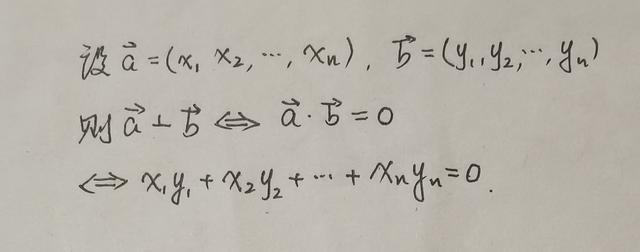 设 a⃗ =(x₁ x₂, ⋯, xₙ), b⃗ =(y₁, y₂, ⋯, yₙ)
则 a⃗ ⊥ b⃗ ⇔ a⃗ · b⃗ = 0
⇔ x₁y₁ + x₂y₂ + ⋯ + xₙyₙ = 0.